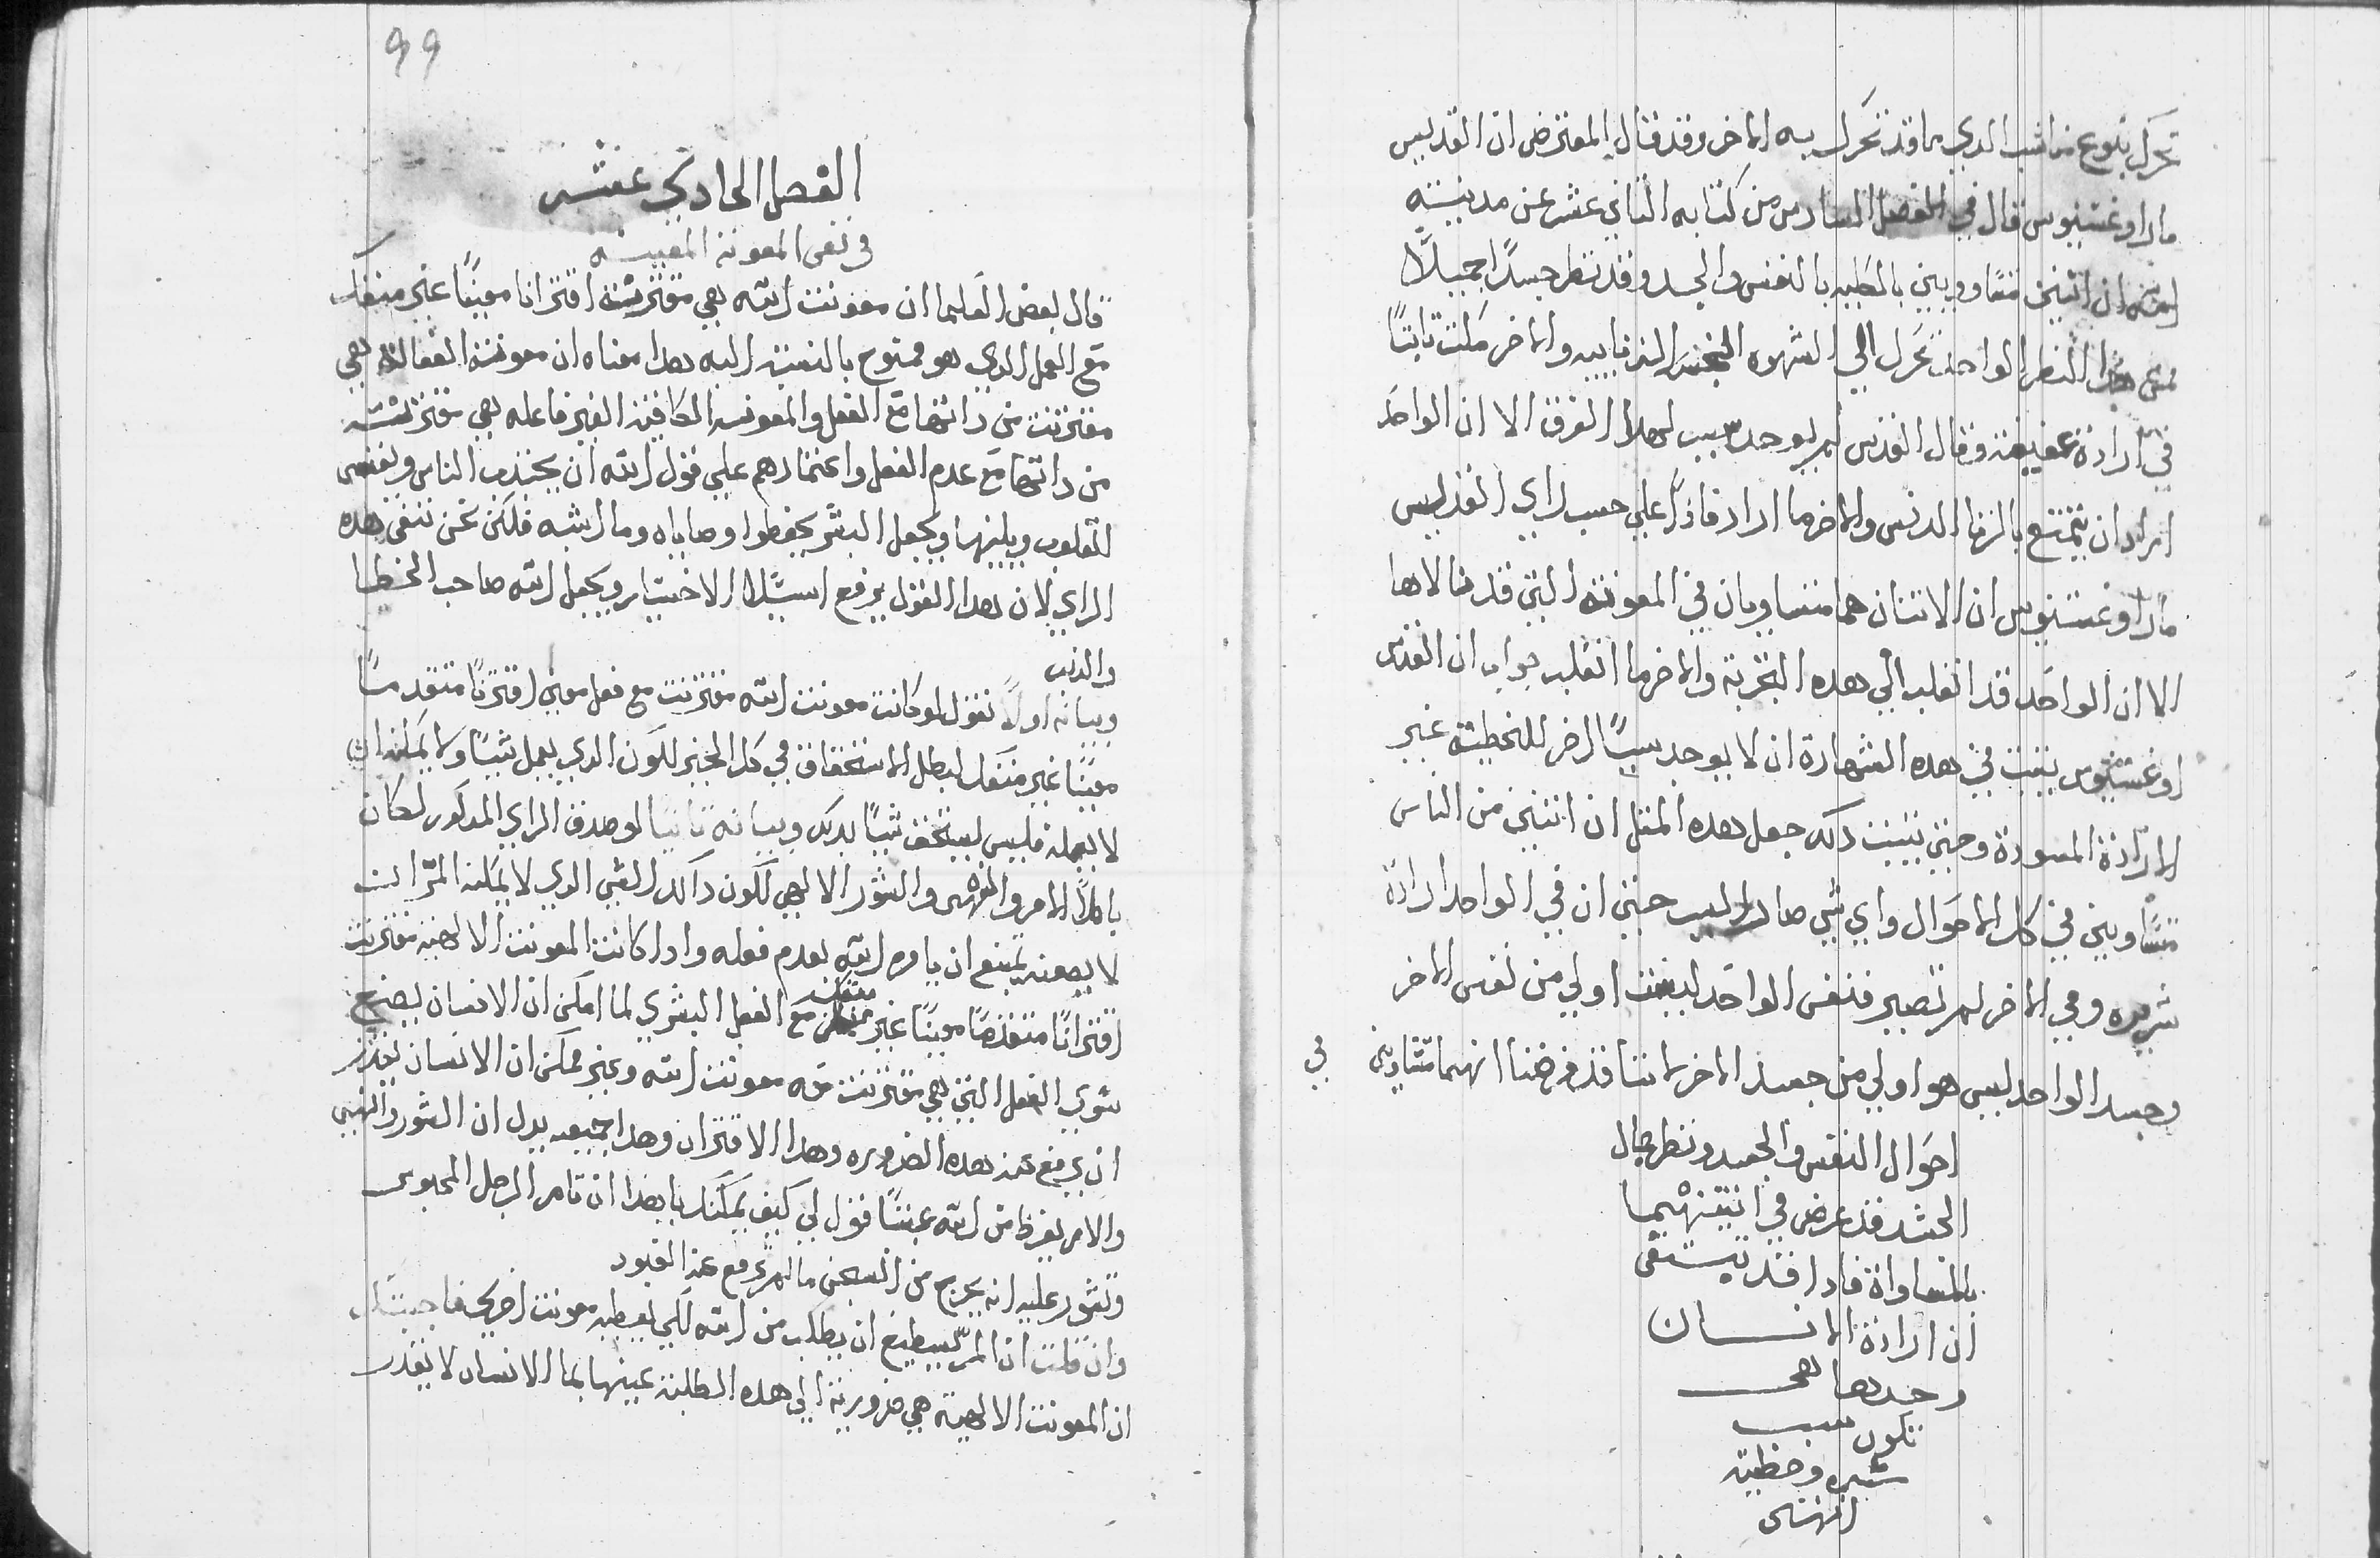 تحرك بنوع مناسب الدي ما قد تحرك به الاخر وقد قال المعترض ان القديس
مار اوغستينوس قال في الفصل السادس من كتابه الثاني عشر عن مدينة
الله ان اثنين متساويين بالطبيه بالنفس والجسد وقد نظر جسدًا جميلًا
فمن هدا النظر الواحد تحرك الي الشهوه النجسه الزناييه والاخر مكث تابتًا
في ارادة عفيفة وقال القديس لم يوجد سبب لهدا الفرق الا ان الواحد
اراد ان يتمتع بالزنا الدنس والاخر ما اراد فادًا علي حسب راي القديس
مار اوغستينوس ان الاتنان هما متساويان في المعونة التي قد نالاها
الا ان الواحد قد انغلب الي هده التجربة والاخر ما انغلب جواب ان القديس
اوغستينوس يتبت في هده الشهادة ان لا يوجد سببًا اخر للخطية غير
الارادة المسودة وحتي يتبت دلك جعل هده المتل ان اتنين من الناس
متساويين في كل الاحوال واي شي صار السبب حتي ان في الواحد ارادة
شريره وفي الاخر لم تصير فنفس الواحد ليست اولي من نفس الاخر
وجسد الواحد ليس هو اولي من جسد الاخر لاننا قد فرضنا انهما متساويين في
احوال النفس والجسد ونظر جمال
الجسد قد عرض في اتنينهما
بالمساواة فادا قد يستقي
ان ارادة الانسان
وحدها هي
تكون سبب
شره وخطيته
انتهي
99
الفصل الحادي عشر
في نفي المعونة المغيبة
قال بعض العلما ان معونت الله هي مقترنة اقترانا معينًا غير منفك
مع العمل الدي هو ممنوح بالنعمة اليه هدا معناه ان معونة الفعالة هي
مقترنت من داتها مع الفعل والمعونه الكافية الغير فاعله هي مقترنة
من داتها مع عدم الفعل واعتمادهم علي قول الله ان يجتدب الناس ويقسي
القلوب ويلينها ويجعل البشر يحفظوا وصاياه وما اشبه فلكن نحن ننفي هده
الراي لان هدا القول يرفع استيلا الاختيار ويجعل الله صاحب الخطا
والدنب
وبيانه اولًا نقول لو كانت معونت الله مقترنت مع فعل معين اقترانًا متقدمًا
معينًا غير منفك لبطل الاستحقاق في كل الخير لكون الدي يعمل شيًا ولا يمكنه ان
لا يعمله فليس يستحق شيًا بدلك وبيانه تانيا لو صدق الراي المدكور لكان
باطلًا الامر والنهي والشور الالهي لكون داك الشي الدي لا يمكنه المر ان
لا يصنعه يمتنع ان يامره الله بعدم فعله وادا كانت المعونت الالهية مقترنت
اقترانًا متقدمًا معينًا غير منفك مع الفعل البشري لما امكن ان الانسان يصنع
سوي الفعل التي هي مقترنت معه معونت الله وغير ممكن ان الانسان يقدر
ان يرفع عنه هده الضروره وهدا الاقتران وهدا جميعه يدل ان الشور والنهي
والامر يفرط من الله عبتًا فقول لي كيف يمكنك يا هدا ان تامر الرجل المحبوس
وتشور عليه انه يخرج من السجن ما لم ترفع عنه القيود
وان قلت ان المر يستطيع ان يطلب من الله لكي يعطيه معونت اخري فاجبتك
ان المعونت الالهية هي ضرورية الي هده الطلبة عينها بما الانسان لا يقدر